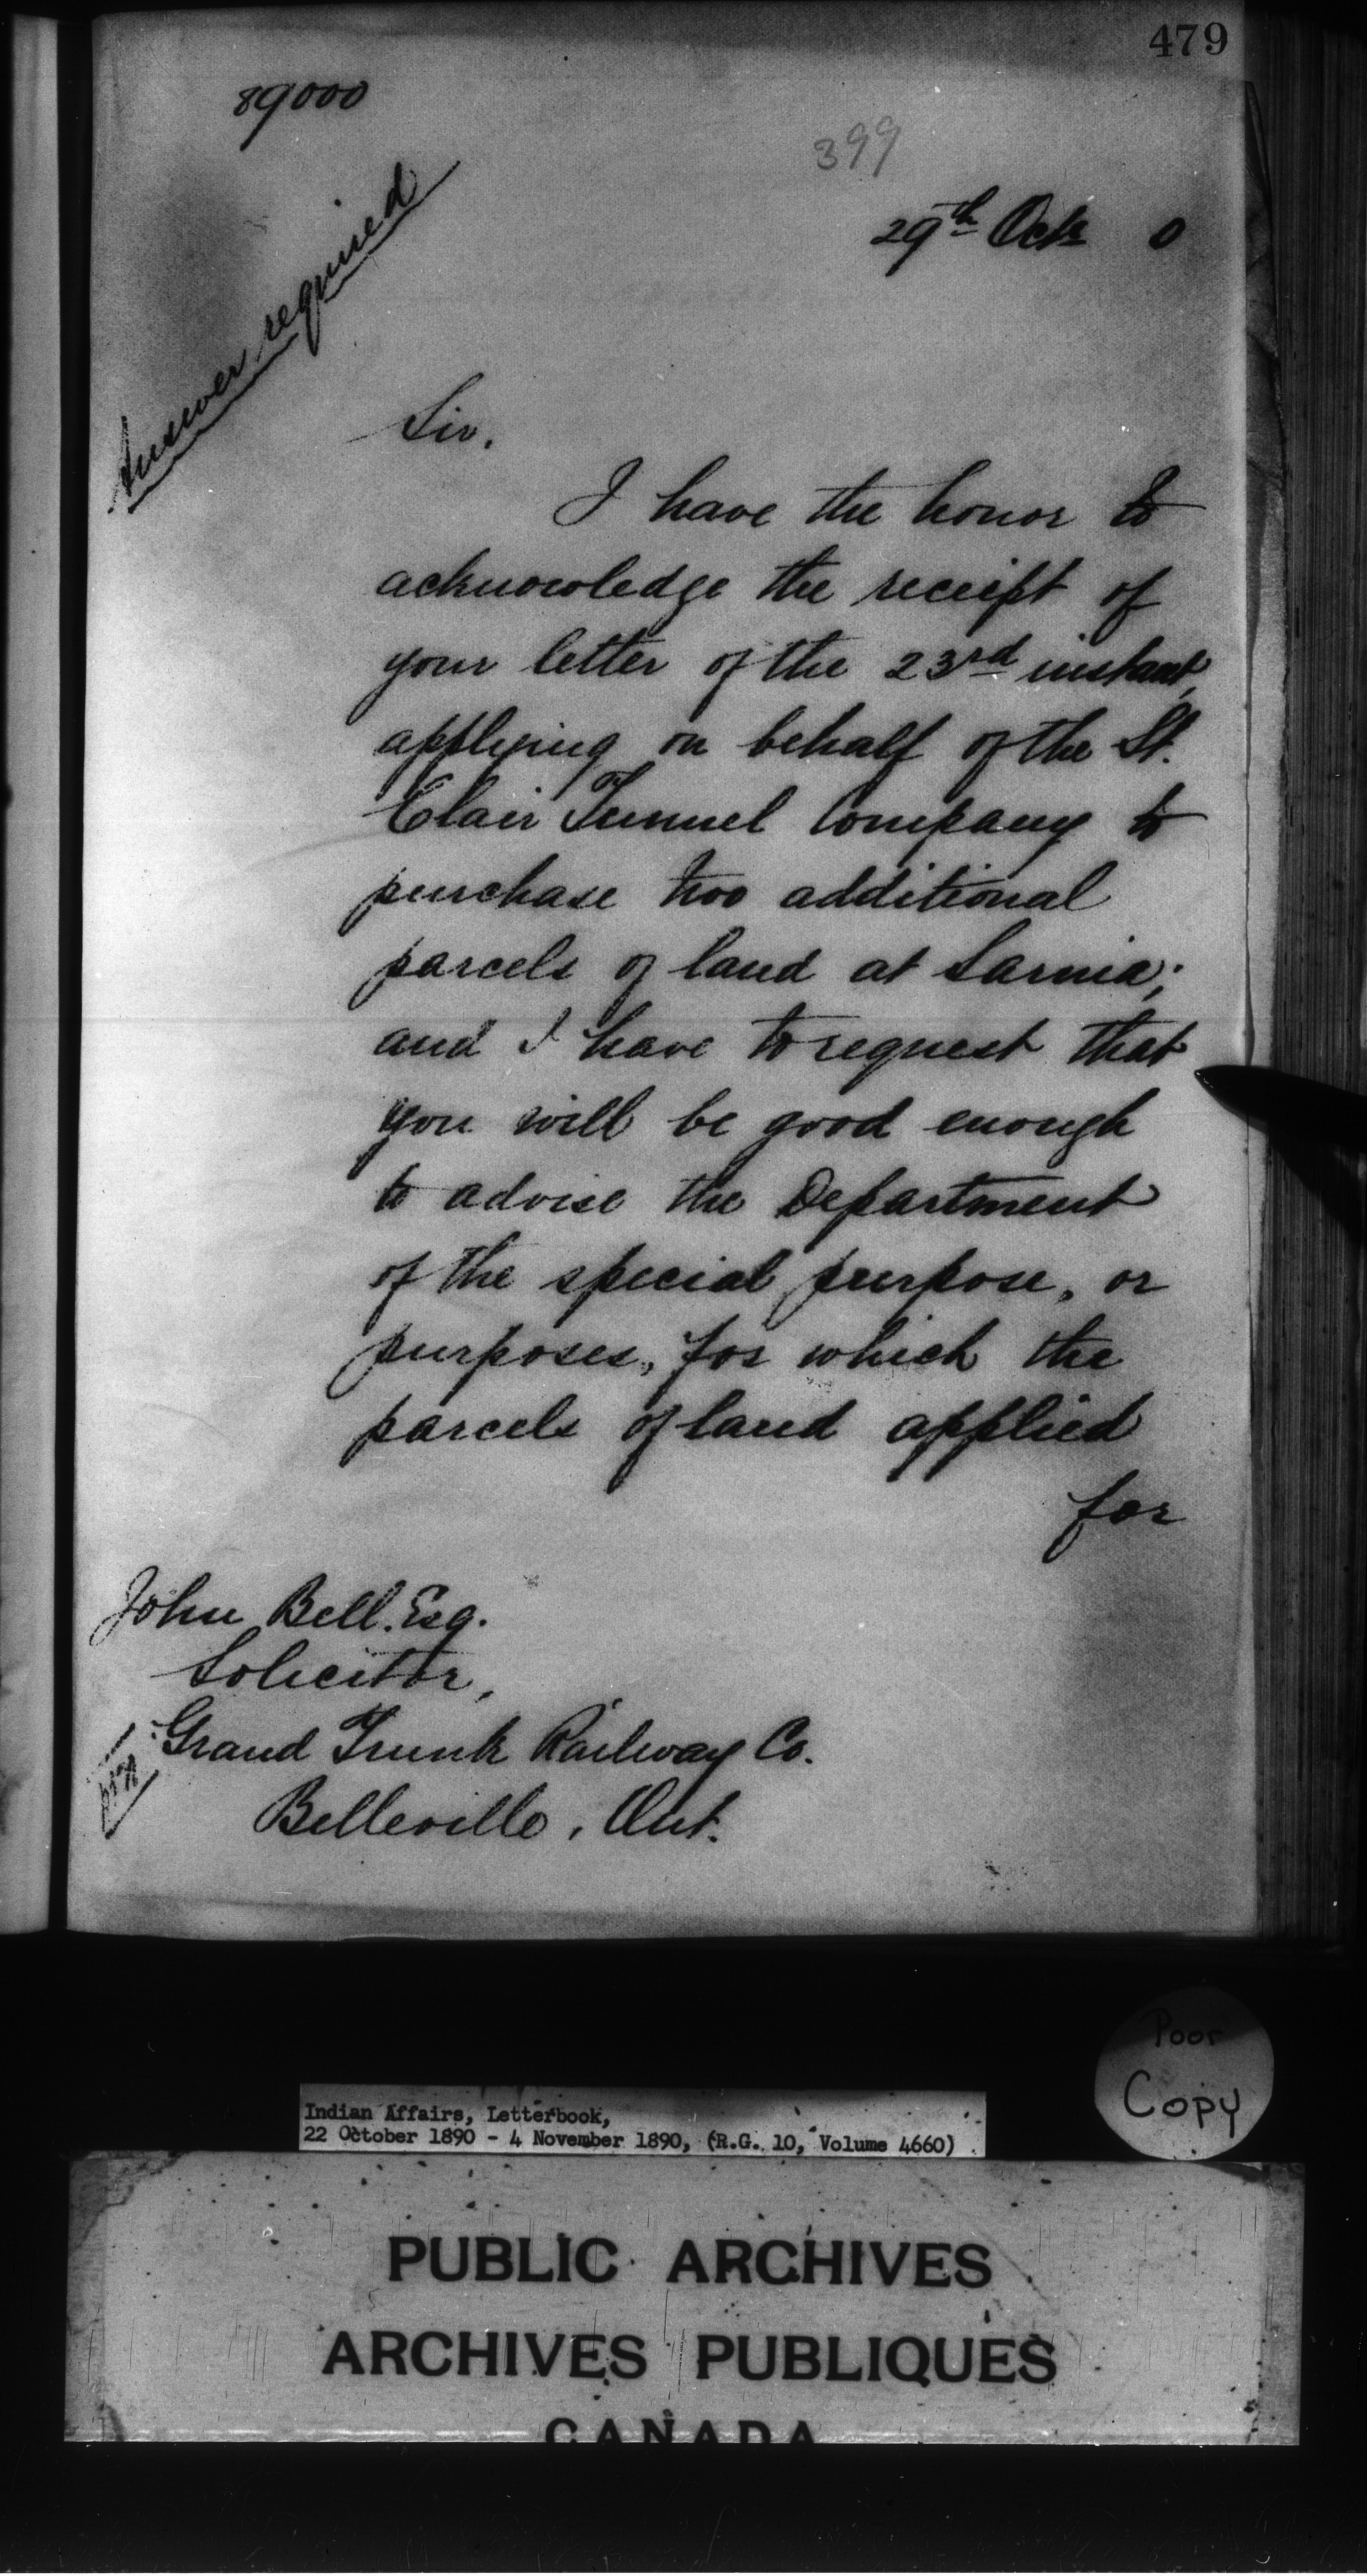 479
89000
399
29th Oct. 0
Answer required
Sir,
I have the honor to
acknowledge the receipt of
your letter of the 23rd instant,
applying on behalf of the St.
Clair Tunnel Company to
purchase two additional
parcels of land at Sarnia;
and I have to request that
you will be good enough
to advise the Department
of the special purpose, or
purposes, for which the
parcels of land applied
for
John Bell. Esq.
Solicitor,
Grand Trunk Railway Co.
Belleville, Ont.
Poor
Copy
Indian Affairs, Letterbook,
22 October 1890 - 4 November 1890, (R.G. 10, Volume 4660)
PUBLIC ARCHIVES
ARCHIVES PUBLIQUES
CANADA